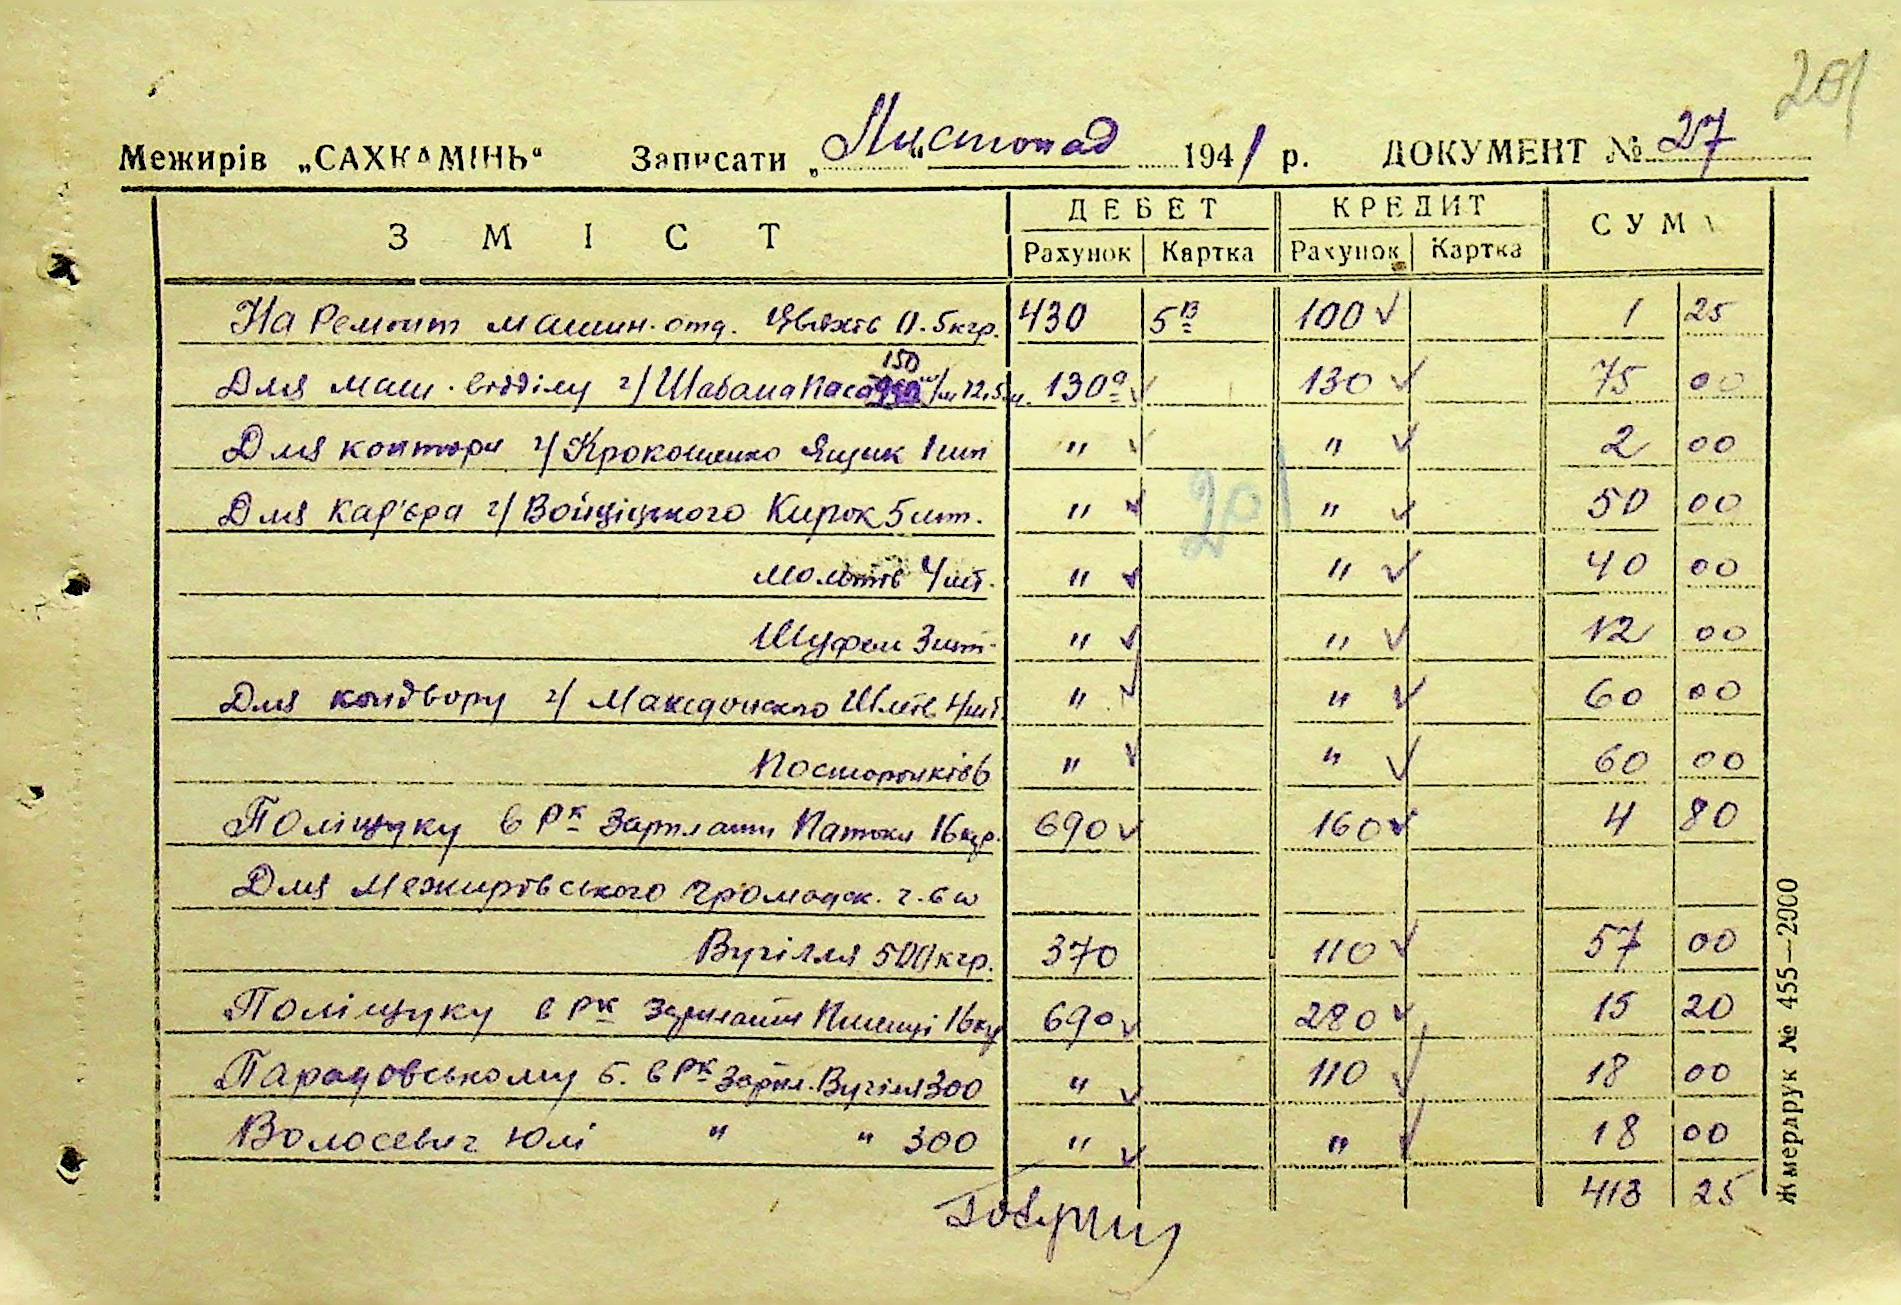 201
Межирів „САХКАМІНЬ“ Записати „ Листопад 1941 р. ДОКУМЕНТ № 27
ЗМІСТ ДЕБЕТ КРЕДИТ СУМА
Рахунок Картка Рахунок Картка
На Ремонт машин. отд. Цвяхів 0.5кгр. 430 5в 100 ✓ 1 25
150
Для маш. відділу ч/ Шабана Паса 12,5 м. 130а ✓ 130 ✓ 75 00
Для контори ч/ Крокошенко Ящик 1 шт " ✓ " ✓ 2 00
Для кар'єра ч/ Войціцького Кирок 5 шт. " ✓ " ✓ 50 00
201
Молотів 4 шт. " ✓ " ✓ 40 00
Шуфель 3 шт. " ✓ " ✓ 12 00
Для кондвору ч/ Шлеїв 4 шт. " ✓ " ✓ 60 00
Посторонків 6 " ✓ " ✓ 60 00
Поліщуку в Рк Зарплати Патоки 16 кгр. 690 ✓ 160 ✓ 4 80
Для Межирівського громадск. г.
Вугілля 500 кгр. 370 110 ✓ 57 00
Поліщуку в Рк Зарплати Пшениці 16 кг 690 ✓ 280 ✓ 15 20
Парадовському Б. в Рк Зарпл. Вугілля 300 " ✓ 110 ✓ 18 00
Волосевич Юлі " " 300 " ✓ " ✓ 18 00
413 25
Жмердрук № 455—2000